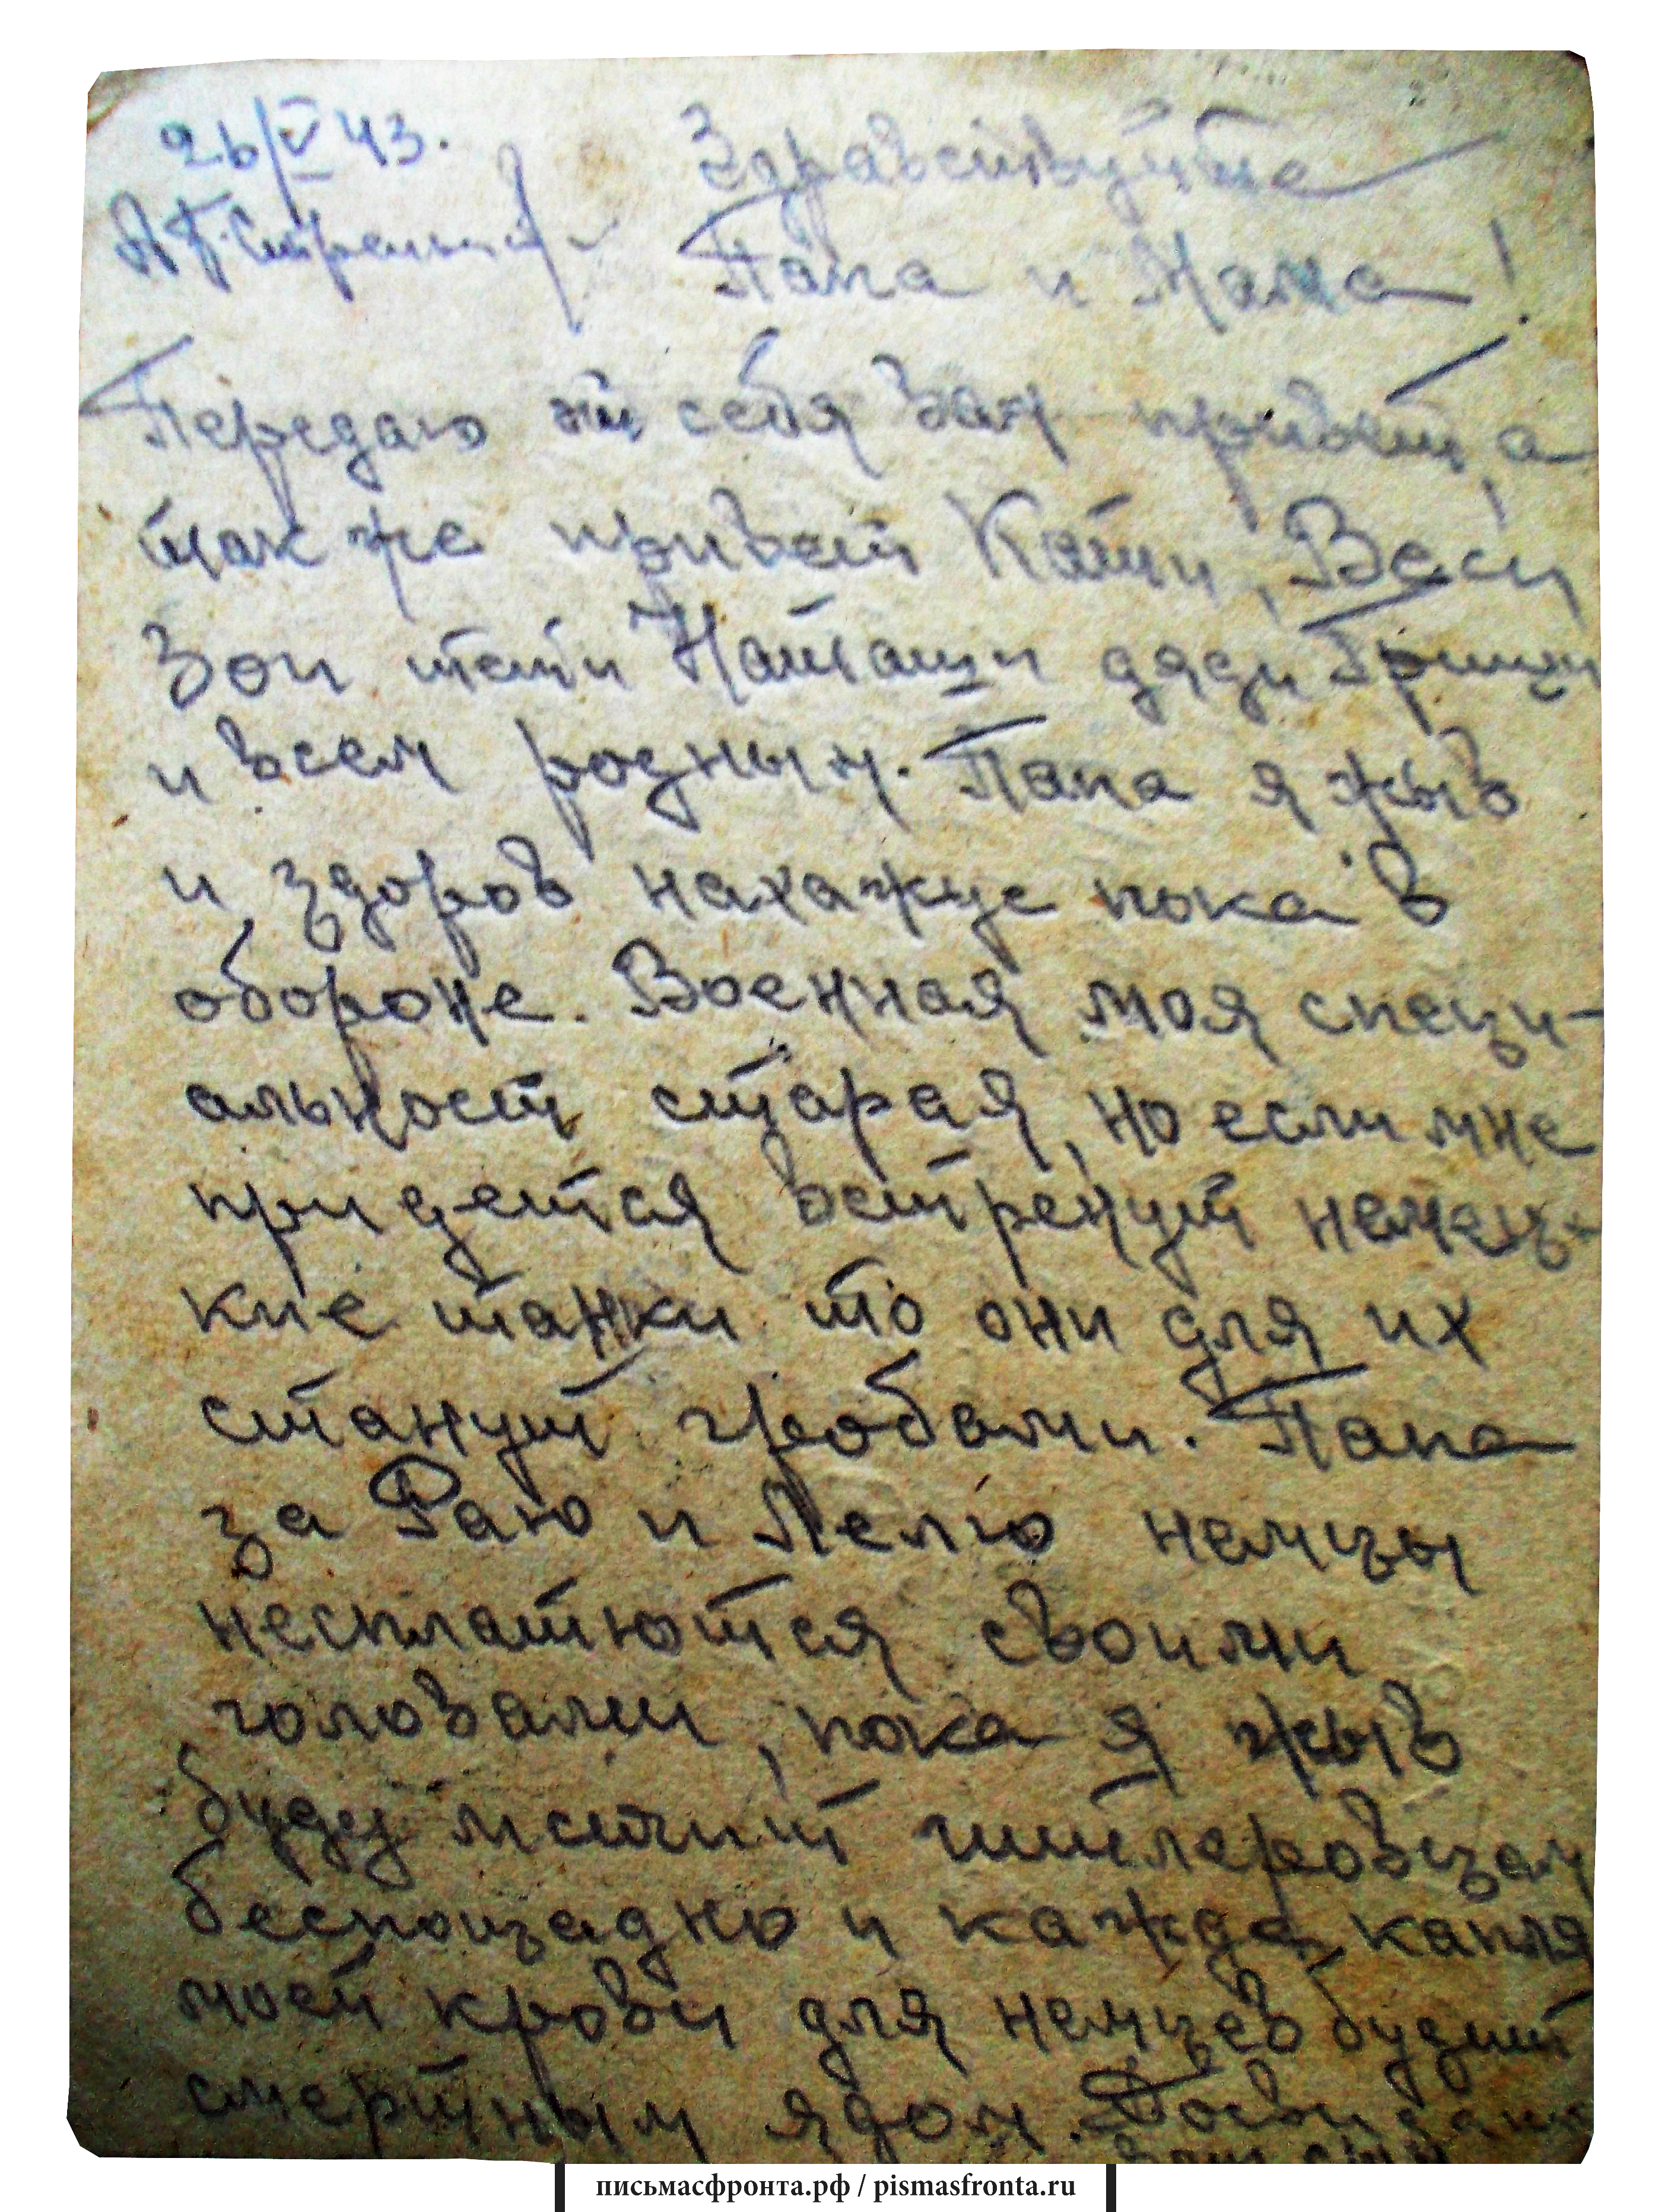 26/V 43.
Здравствуйте
Папа и Мама!
Передаю от себя вам привет, а
так же привет Кати, Васи,
Зои тети Наташи дяди Гриши
и всем родным. Папа я жыв
и здоров нахажус пока в
обороне. Военная моя специ-
альност старая, но если мне
придется встренут немец-
кие танки то они для их
станут гробами. Папа
за Раю и Лелю немцы
несплатютса своими
головами, пока я жыв
буду мстит гитлеровцам
беспощадно и кажда капля
моей крови для немцев будит
смертным ядом. Досвидания
ваш сын
письмасфронта.рф / pismasfronta.ru